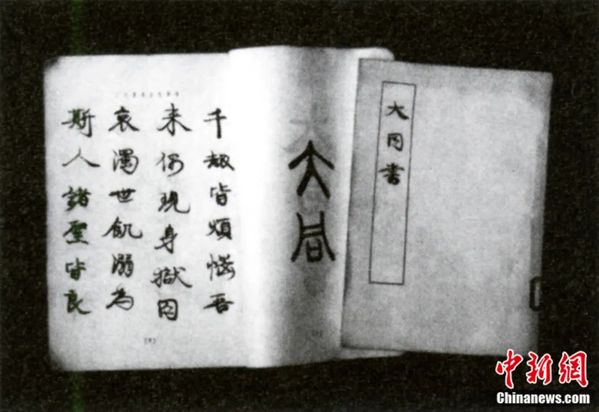 大同書
大同
千劫皆煩惱吾
来仍現身獄囚
哀濁世飢溺為
斯人諸聖皆良
中新網
Chinanews.com